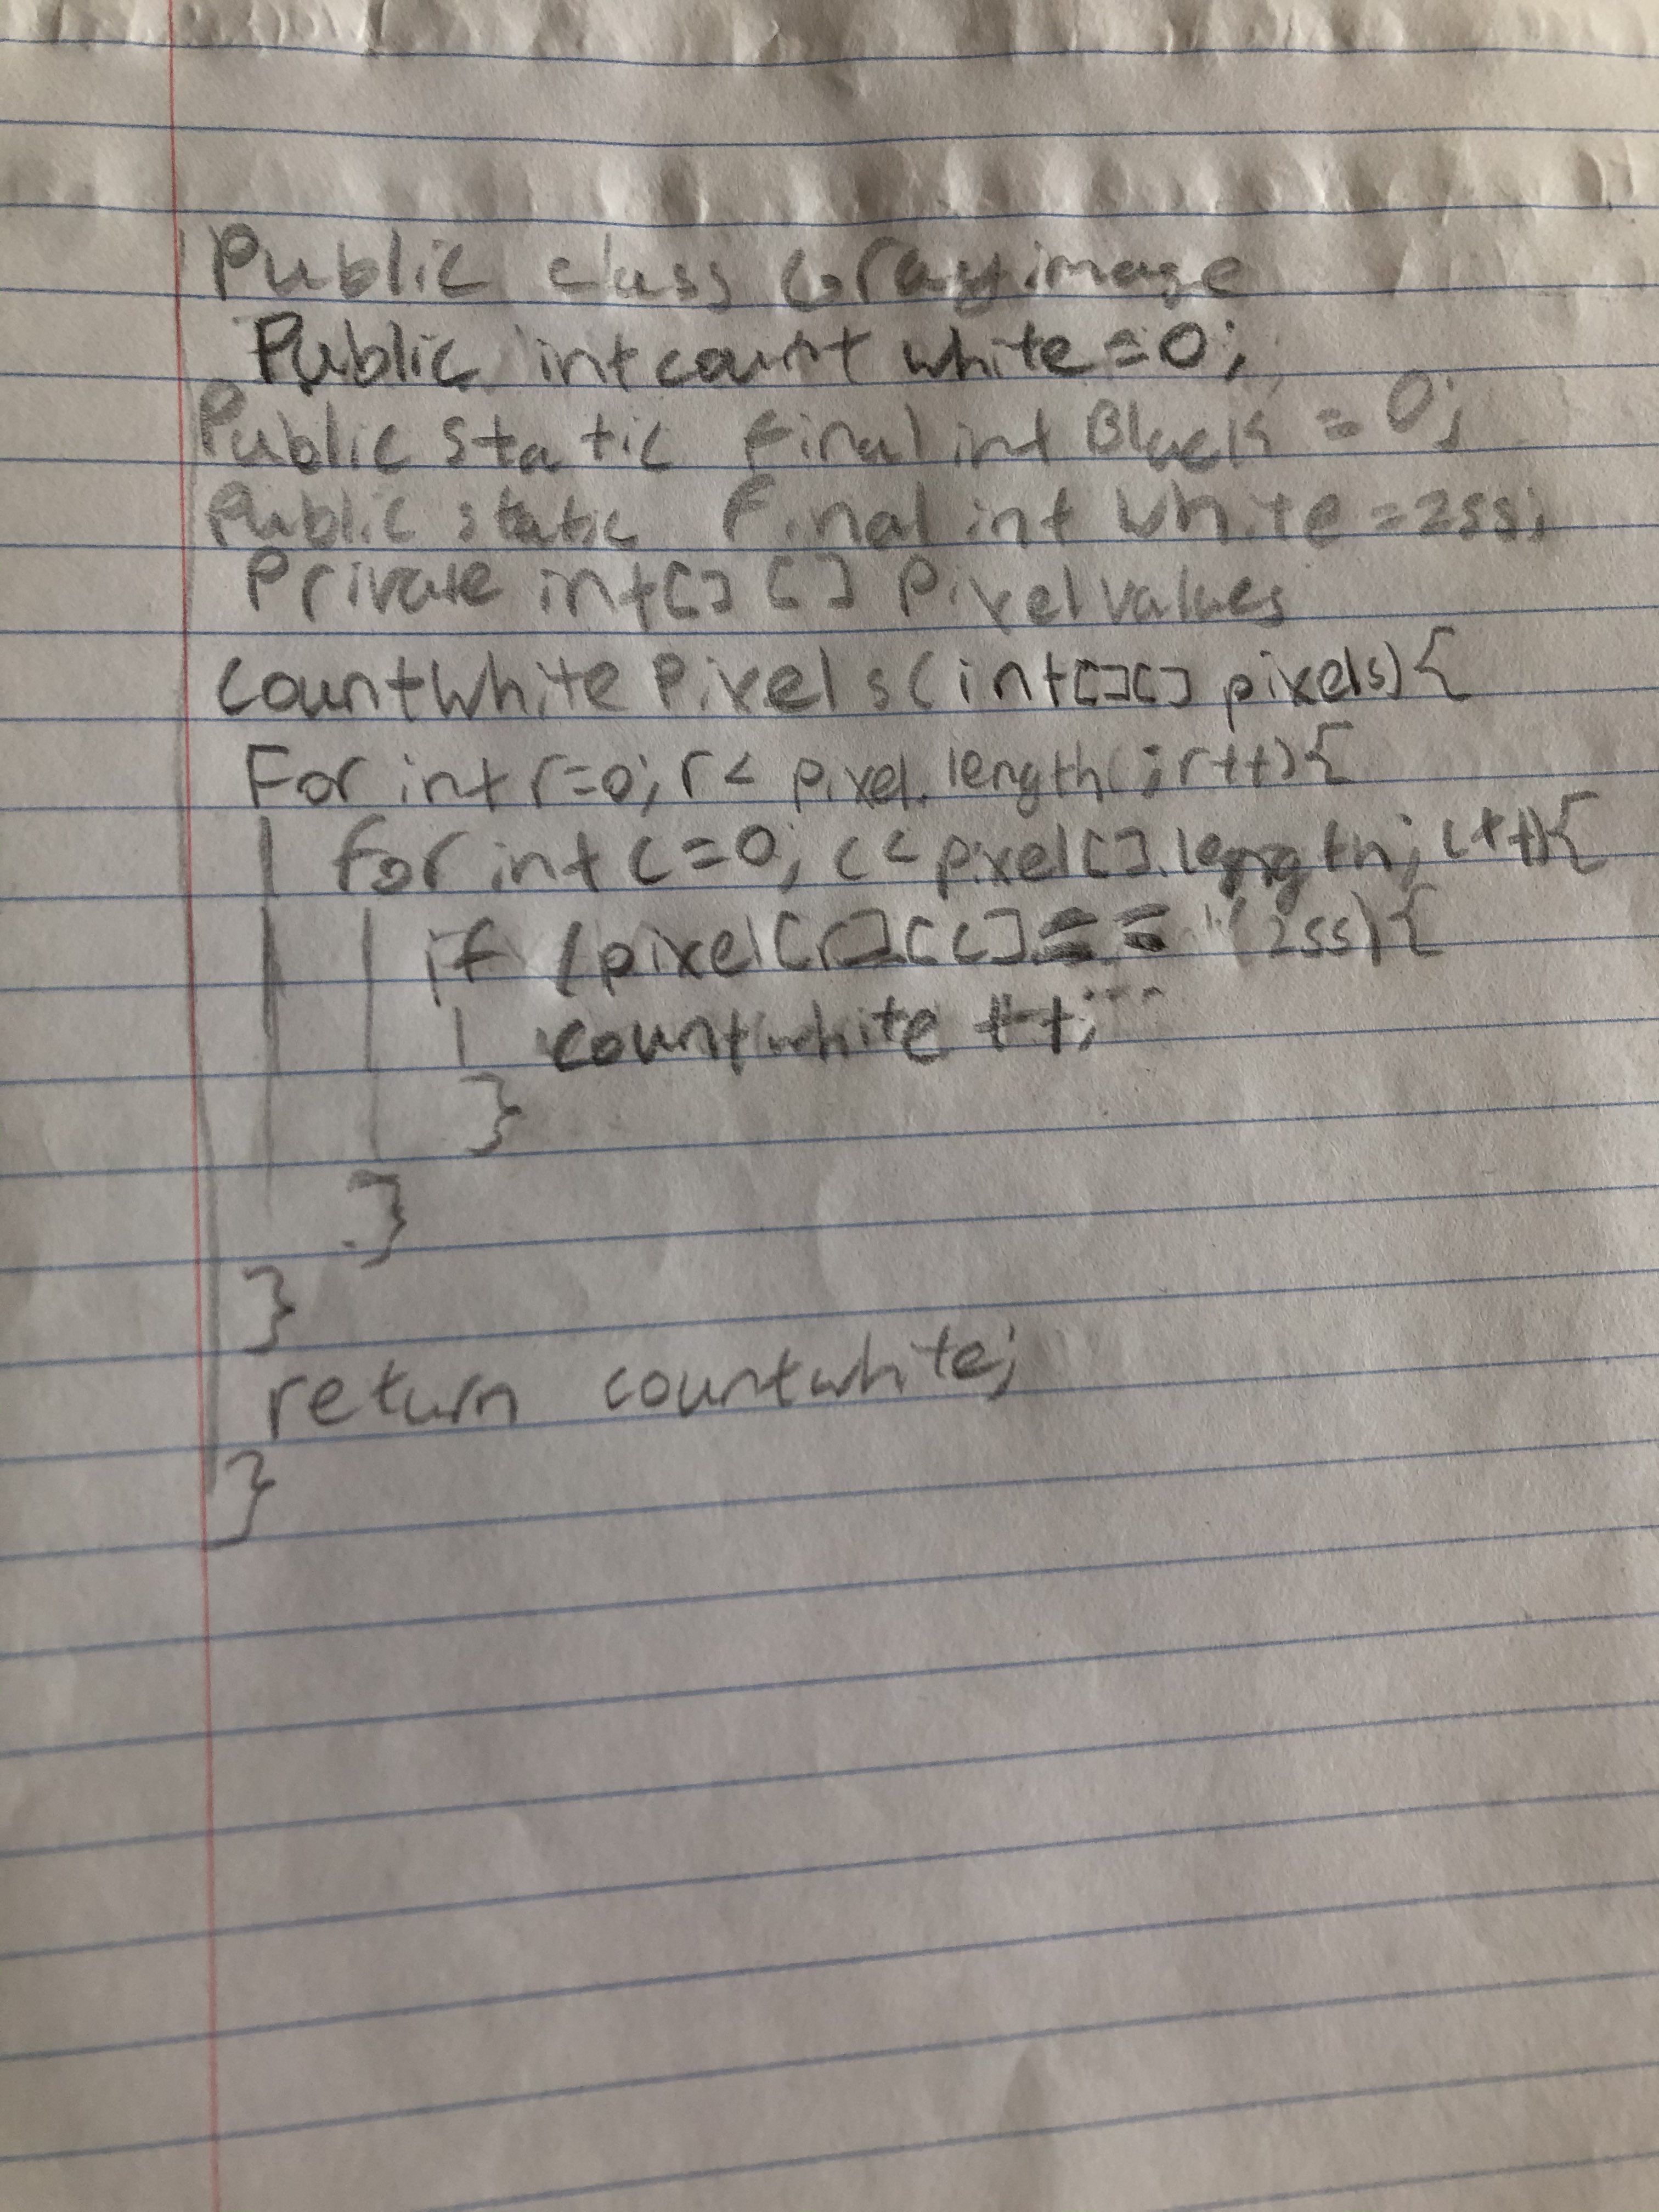 1) Public class Grayimage
Public int count white = 0;
Public static Final int Black = 0;
Public static Final int White = 255;
Private int[] [] Pixel values
CountWhite Pixels (int[][] pixels){
For int r=0; r< pixel. length(; r++){
for int c=0; c<pixel[].length; c++){
if (pixel[r][c] == (255){
countwhite ++;
}
}
}
return countwhite;
}